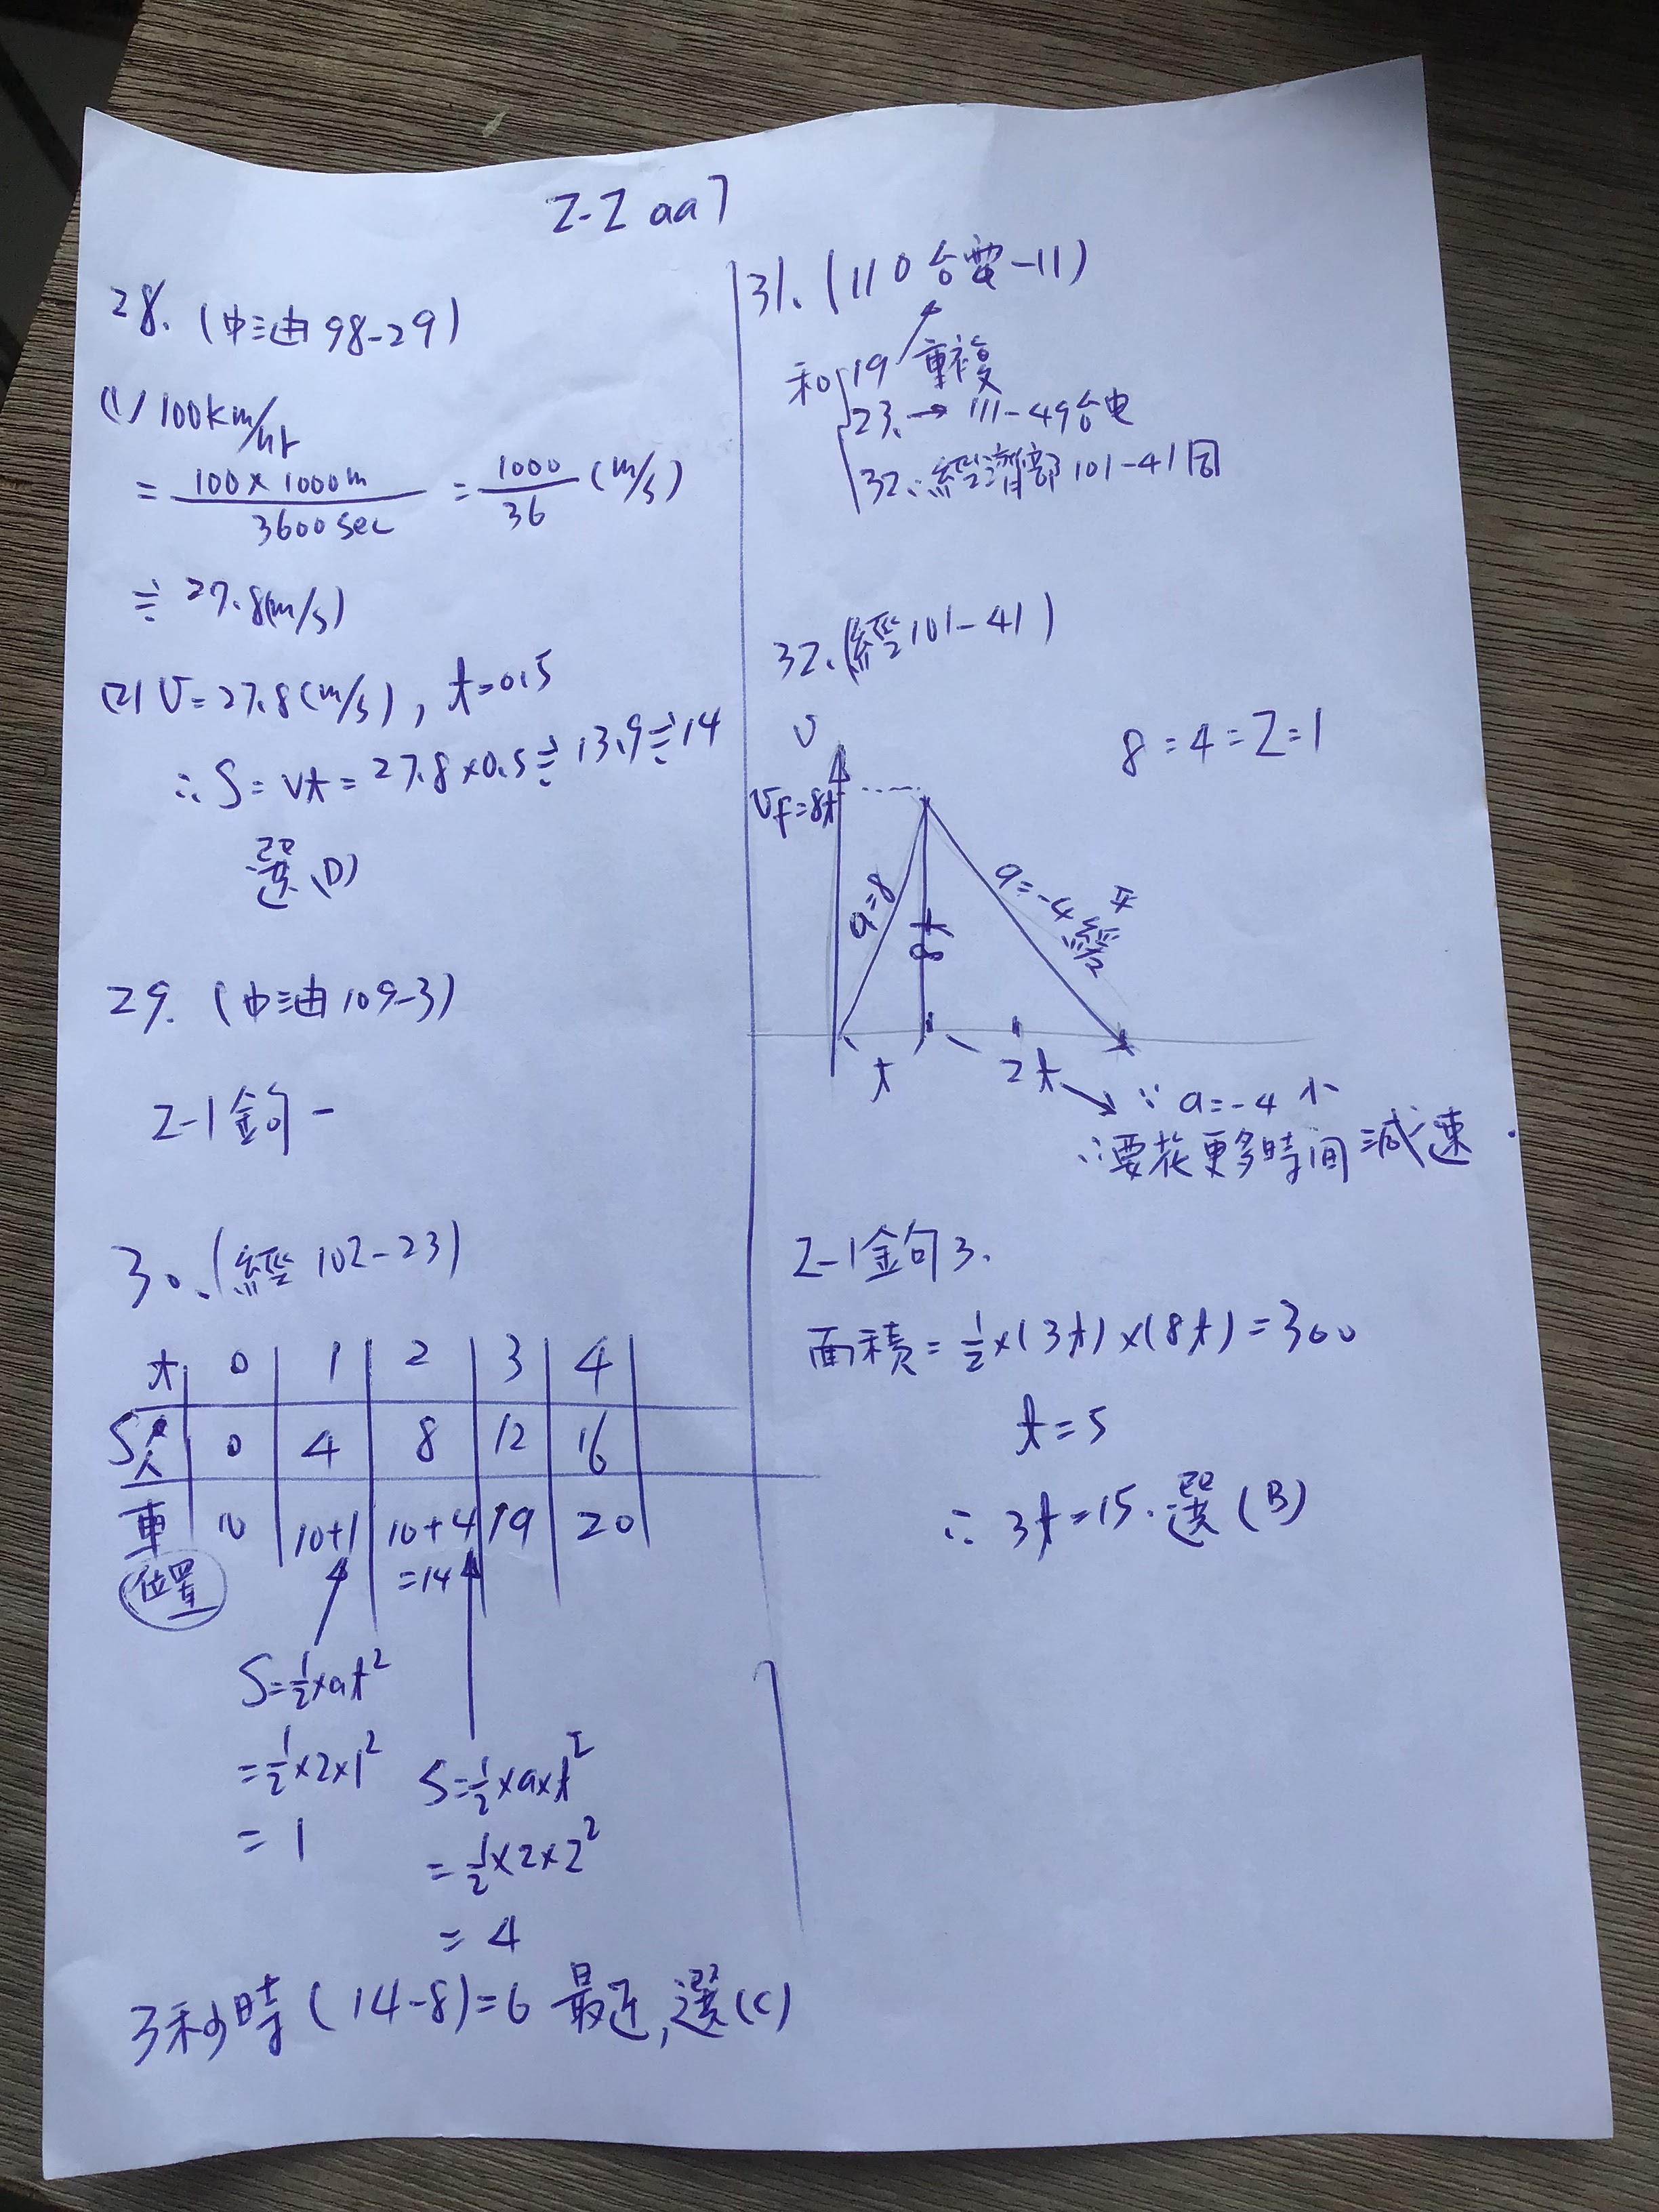 2-2 aa7
28. (中油98-29)
(1) 100km/hr
= 100×1000m/3600sec = 1000/36 (m/s)
≒ 27.8(m/s)
(2) V=27.8(m/s), t=0.5
∴ S=vt=27.8×0.5≒13.9≒14
選(D)
29. (中油109-3)
2-1金句一
30. (經102-23)
t 0 1 2 3 4
S人 0 4 8 12 16
車 10 10+1 10+4 19 20
=14
位置
S=½×at²
=½×2×1²
= 1
S=½×a×t²
=½×2×2²
= 4
3秒時(14-8)=6 最近,選(C)
31. (110台電-11)
和 19 重複
23. → 111-49台电
32. 經濟部101-41同
32. (經101-41)
8=4=2=1
v
Vf=8t
a=8
8t
a=-4
t
2t
∵ a=-4 小
∴要花更多時間減速.
2-1金句3.
面積=½×(3t)×(8t)=300
t=5
∴ 3t=15. 選(B)